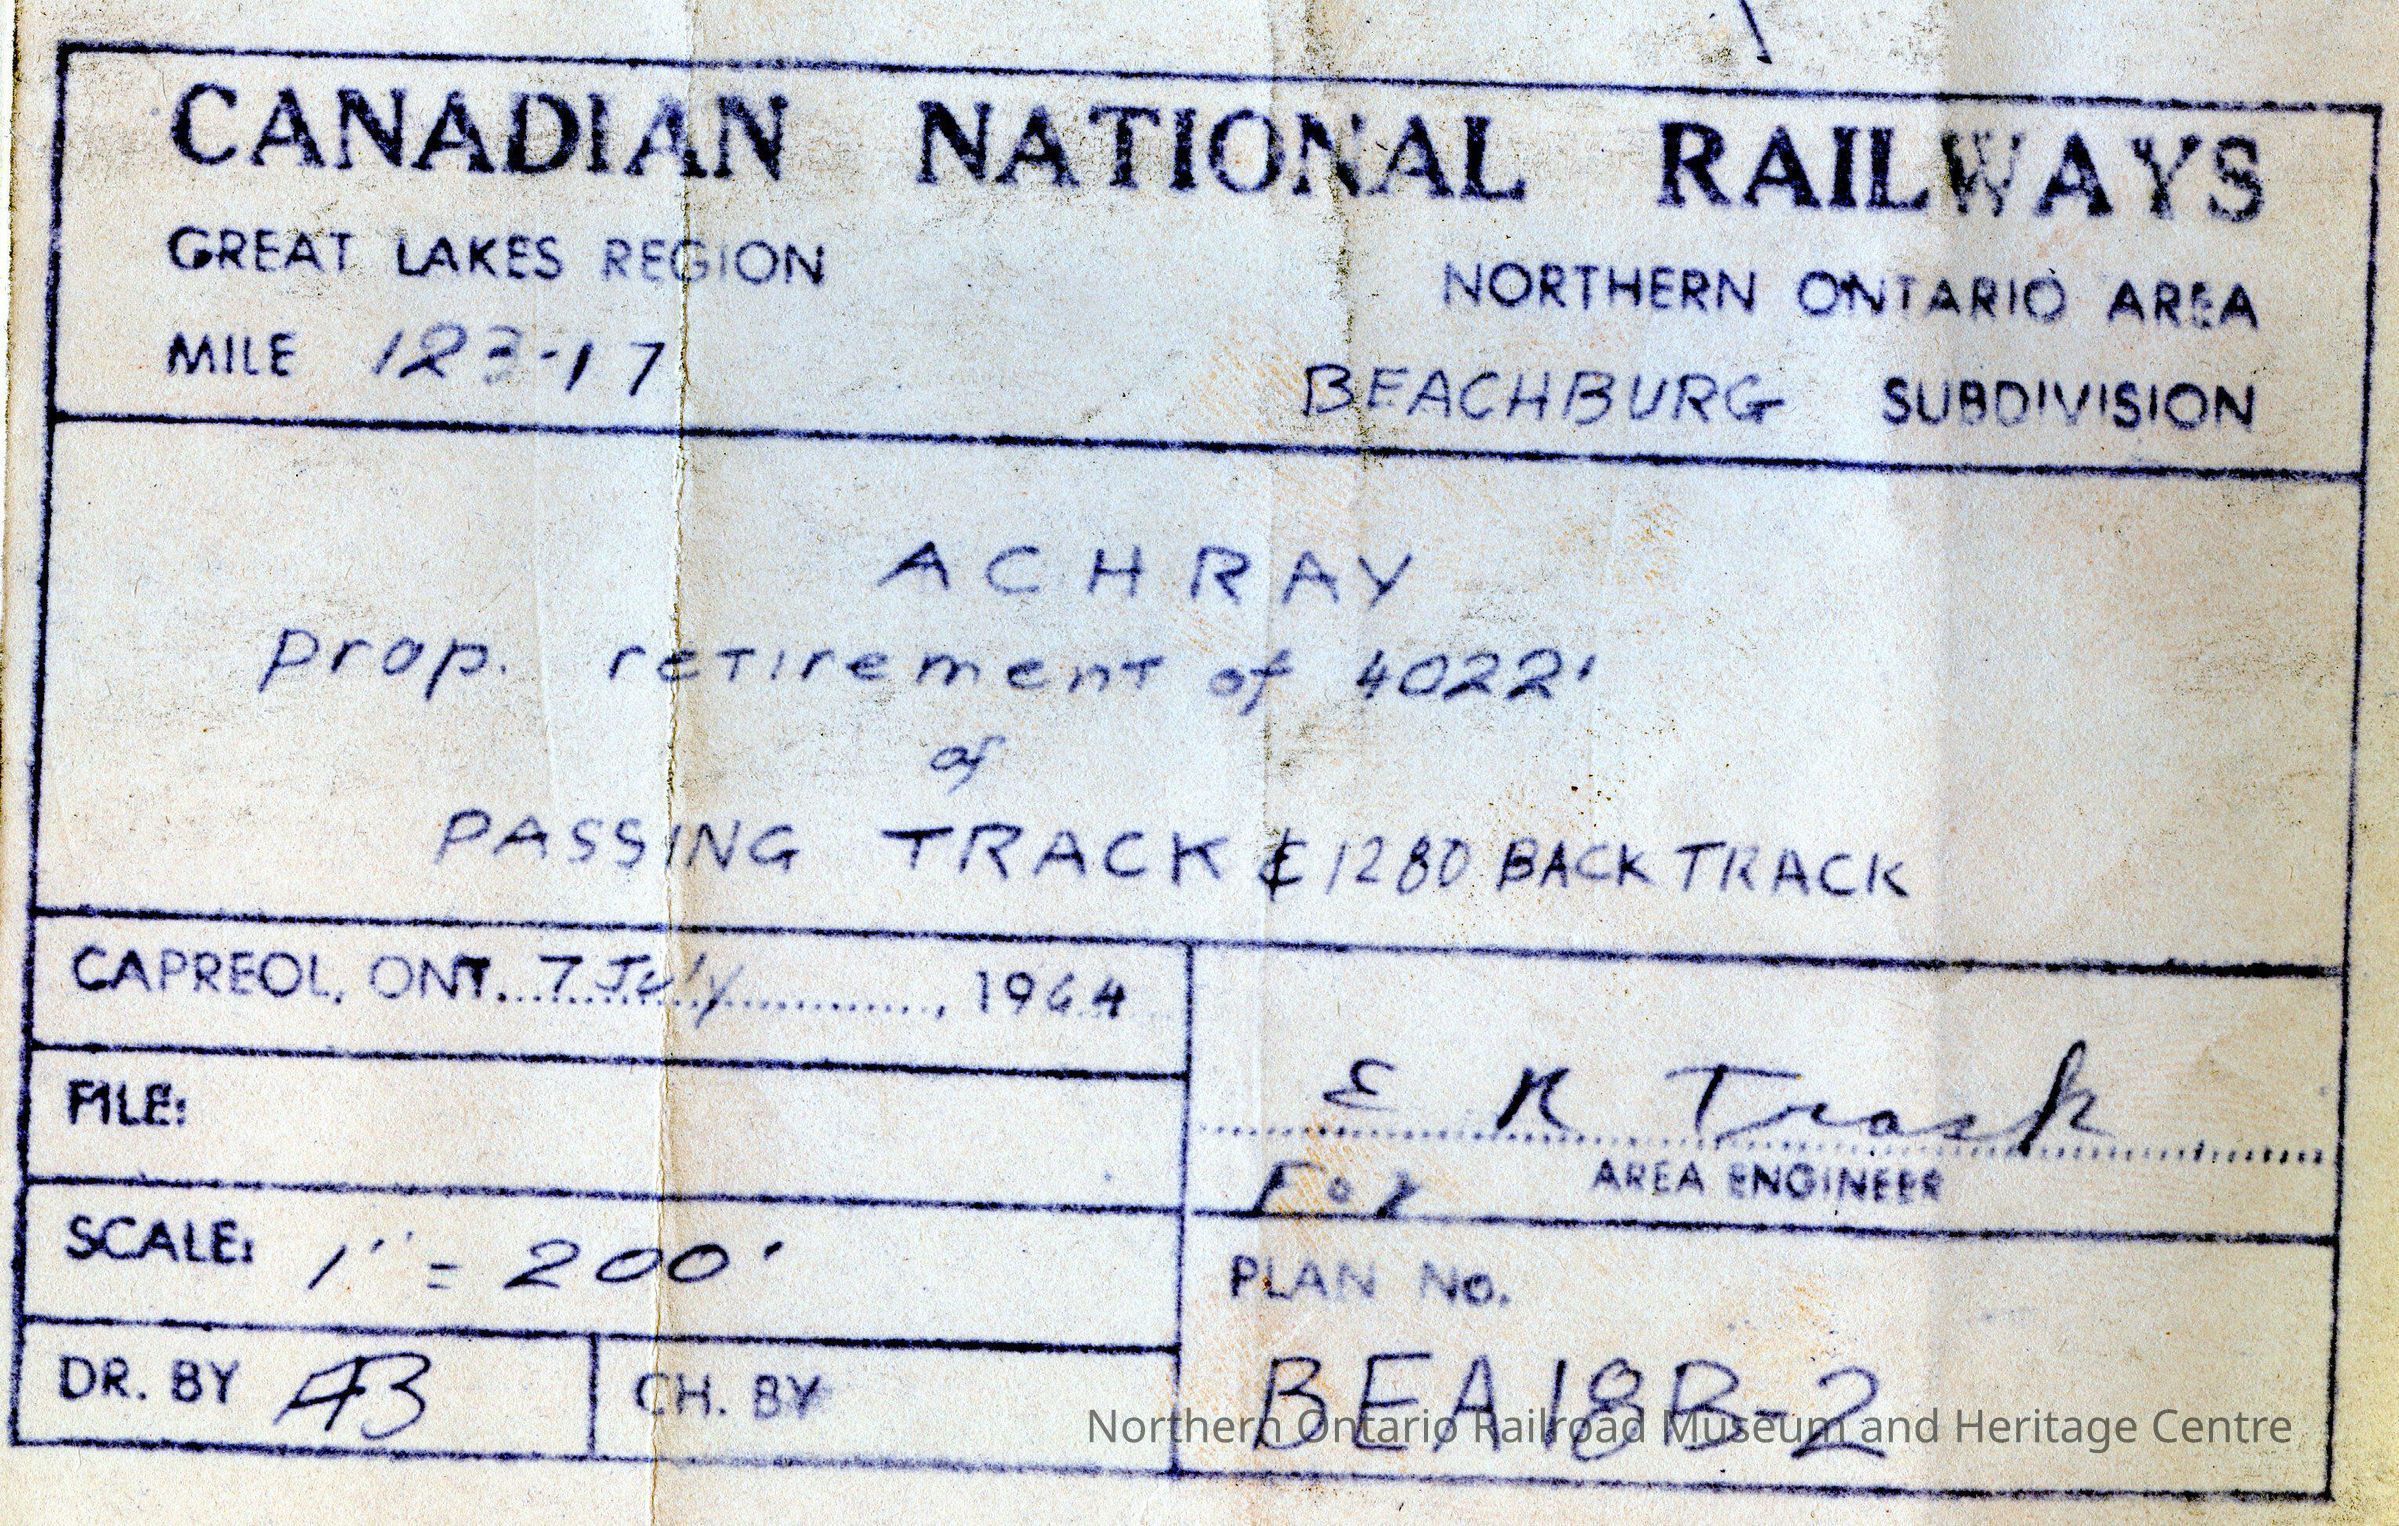 CANADIAN NATIONAL RAILWAYS
GREAT LAKES REGION
NORTHERN ONTARIO AREA
MILE 123-17
BEACHBURG SUBDIVISION
ACHRAY
prop. retirement of 4022'
of
PASSING TRACK & 1280 BACK TRACK
CAPREOL, ONT. 7 July, 1964
FILE:
E R Trask
For AREA ENGINEER
SCALE: 1" = 200'
PLAN No.
BEA 18B-2
DR. BY AB
CH. BY
Northern Ontario Railroad Museum and Heritage Centre